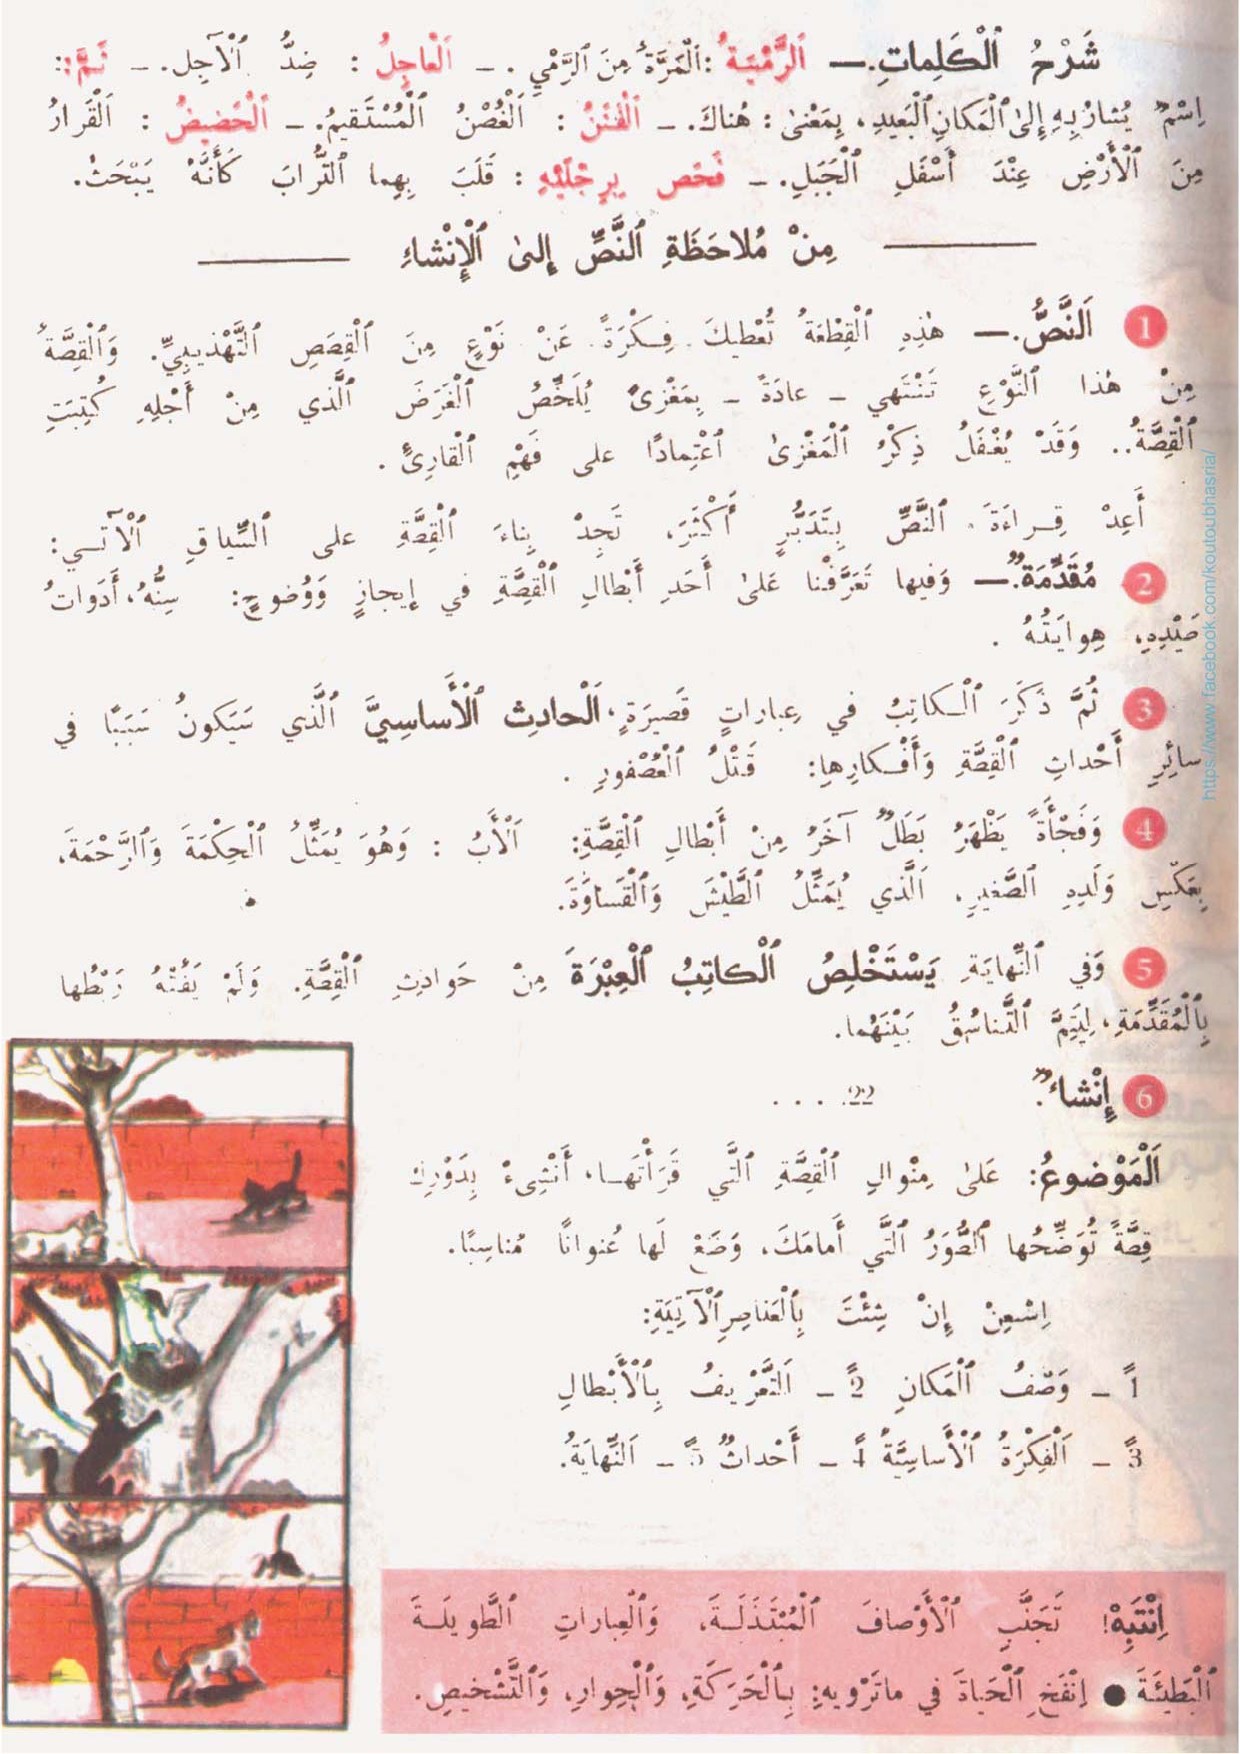 شَرْحُ ٱلْكَلِماتِ.— اَلرَّمْيَةُ: اَلْمَرَّةُ مِنَ ٱلرَّمْيِ. — اَلْعاجِلُ : ضِدُّ ٱلْآجِلِ. — ثَمَّ:
اِسْمٌ يُشارُ بِهِ إِلىٰ ٱلْمَكانِ ٱلْبَعيدِ، بِمَعْنىٰ : هُناكَ. — اَلْفَنَنُ : اَلْغُصْنُ ٱلْمُسْتَقيمُ. — اَلْحَضيضُ : اَلْقَرارُ
مِنَ ٱلْأَرْضِ عِنْدَ أَسْفَلِ ٱلْجَبَلِ. — فَحَص بِرِجْلَيْهِ : قَلَبَ بِهِما ٱلتُّرابَ كَأَنَّهُ يَبْحَثُ.
مِنْ مُلاحَظَةِ ٱلنَّصِّ إِلىٰ ٱلْإِنْشاءِ
1 اَلنَّصُّ.— هٰذِهِ ٱلْقِطْعَةُ تُعْطيكَ فِكْرَةً عَنْ نَوْعٍ مِنَ ٱلْقِصَصِ ٱلتَّهْذيبِيِّ. وَٱلْقِصَّةُ
مِنْ هٰذا ٱلنَّوْعِ تَنْتَهي — عادَةً — بِمَغْزىً يُلَخِّصُ ٱلْغَرَضَ ٱلَّذي مِنْ أَجْلِهِ كُتِبَتِ
ٱلْقِصَّةُ.. وَقَدْ يُغْفَلُ ذِكْرُ ٱلْمَغْزىٰ ٱعْتِمادًا على فَهْمِ ٱلْقارِئِ.
أَعِدْ قِراءَةَ ٱلنَّصِّ بِتَدَبُّرٍ أَكْثَرَ، تَجِدْ بِناءَ ٱلْقِصَّةِ على ٱلسِّياقِ ٱلْآتي:
2 مُقَدِّمَةٌ.— وَفيها تَعَرَّفْنا عَلىٰ أَحَدِ أَبْطالِ ٱلْقِصَّةِ في إيجازٍ وَوُضوحٍ: سِنُّهُ، أَدَواتُ
صَيْدِهِ، هِوايَتُهُ .
3 ثُمَّ ذَكَرَ ٱلْكاتِبُ في عِباراتٍ قَصيرَةٍ، اَلْحادِثَ ٱلْأَساسِيَّ ٱلَّذي سَيَكونُ سَبَبًا في
سائِرِ أَحْداثِ ٱلْقِصَّةِ وَأَفْكارِها: قَتْلُ ٱلْعُصْفورِ .
4 وَفَجْأَةً يَظْهَرُ بَطَلٌ آخَرُ مِنْ أَبْطالِ ٱلْقِصَّةِ: اَلْأَبُ : وَهُوَ يُمَثِّلُ ٱلْحِكْمَةَ وَٱلرَّحْمَةَ،
بِعَكْسِ وَلَدِهِ ٱلصَّغيرِ، اَلَّذي يُمَثِّلُ ٱلطَّيْشَ وَٱلْقَساوَةَ.
5 وَفي ٱلنِّهايَةِ يَسْتَخْلِصُ ٱلْكاتِبُ ٱلْعِبْرَةَ مِنْ حَوادِثِ ٱلْقِصَّةِ. وَلَمْ يَفُتْهُ رَبْطُها
بِٱلْمُقَدِّمَةِ، لِيَتِمَّ ٱلتَّناسُقُ بَيْنَهُما.
6 إِنْشاءٌ. 22. . . .
اَلْمَوْضوعُ: عَلىٰ مِنْوالِ ٱلْقِصَّةِ ٱلَّتي قَرَأْتَها، أَنْشِئْ بِدَوْرِكَ
قِصَّةً تُوَضِّحُها ٱلصُّوَرُ ٱلَّتي أَمامَكَ، وَضَعْ لَها عُنوانًا مُناسِبًا.
اِسْتَعِنْ إِنْ شِئْتَ بِٱلْعَناصِرِ ٱلْآتِيَةِ:
1ً — وَصْفُ ٱلْمَكانِ 2ً — اَلتَّعْريفُ بِٱلْأَبْطالِ
3ً — اَلْفِكْرَةُ ٱلْأَساسِيَّةُ 4ً — أَحْداثٌ 5ً — اَلنِّهايَةُ.
اِنْتَبِهْ! تَجَنَّبِ ٱلْأَوْصافَ ٱلْمُبْتَذَلَةَ، وَٱلْعِباراتِ ٱلطَّويلَةَ
ٱلْبَطيئَةَ ● اِنْفَخِ ٱلْحَياةَ في ماتَرْويهِ: بِٱلْحَرَكَةِ، وَٱلْحِوارِ، وَٱلتَّشْخيصِ.
https://www.facebook.com/koutoubhasria/